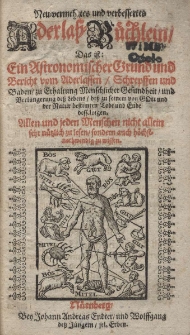 Neu vermehrtes und verbessertes
Aderlaß Büchlein/
Das ist:
Ein Astronomischer Grund und
Bericht vom Aderlassen / Schrepffen und
Baden / zu Erhaltung Menschlicher Gesundheit / und
Verlängerung deß Lebens / biß zu seinem von Gott und
der Natur bestimten Tod und Ende
beschlossen.
Allen und jeden Menschen nicht allein
sehr nützlich zu lesen / sondern auch höchst-
nothwendig zu wissen.
Nürnberg/
Bey Johann Andreas Endter, und Wolffgang
deß Jüngern / sel. Erben.